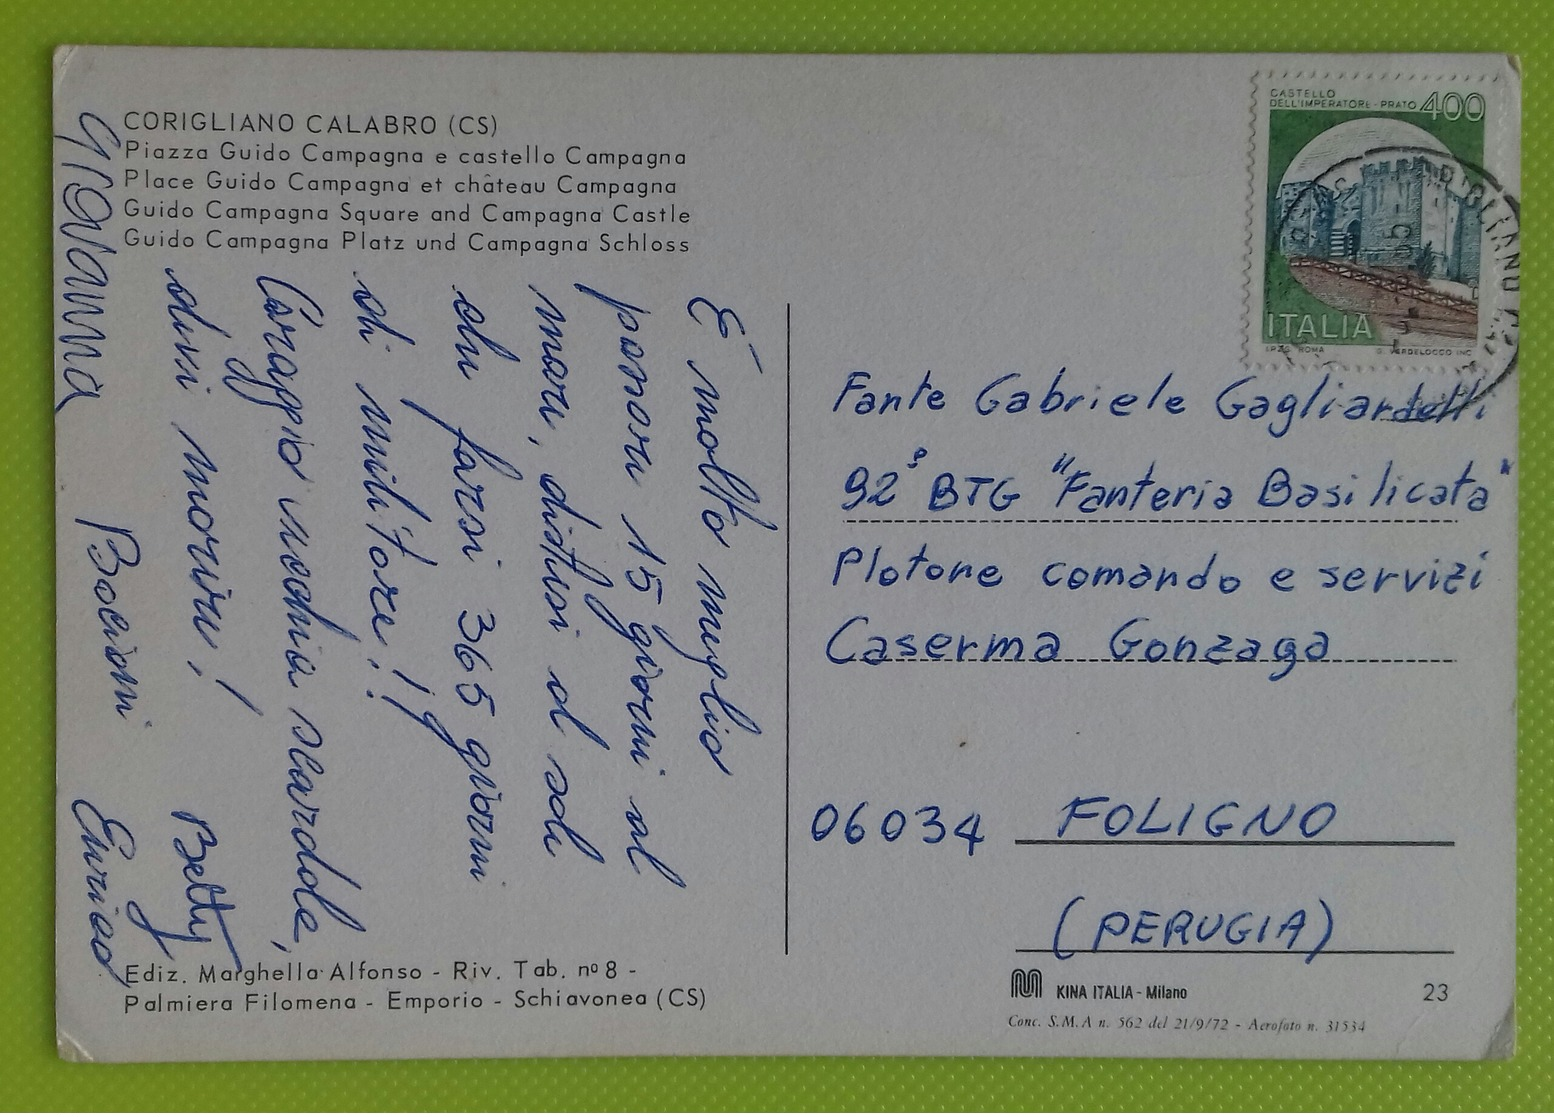 CORIGLIANO CALABRO (CS)
Piazza Guido Campagna e castello Campagna
Place Guido Campagna et château Campagna
Guido Campagna Square and Campagna Castle
Guido Campagna Platz und Campagna Schloss
È molto meglio
passare 15 giorni al
mare, distesi al sole
che farsi 365 giorni
di militare!!
Coraggio vecchia scardole,
devi morire!
Betty
Giovanna Bocioni Enrico
Ediz. Marghella Alfonso - Riv. Tab. nº 8 -
Palmiera Filomena - Emporio - Schiavonea (CS)
CASTELLO
DELL'IMPERATORE - PRATO 400
ITALIA
I.P.Z.S. ROMA
Fante Gabriele Gagliardelli
92° BTG "Fanteria Basilicata"
Plotone comando e servizi
Caserma Gonzaga
06034 FOLIGNO
(PERUGIA)
KINA ITALIA - Milano
23
Conc. S.M.A n. 562 del 21/9/72 - Aerofoto n. 31534